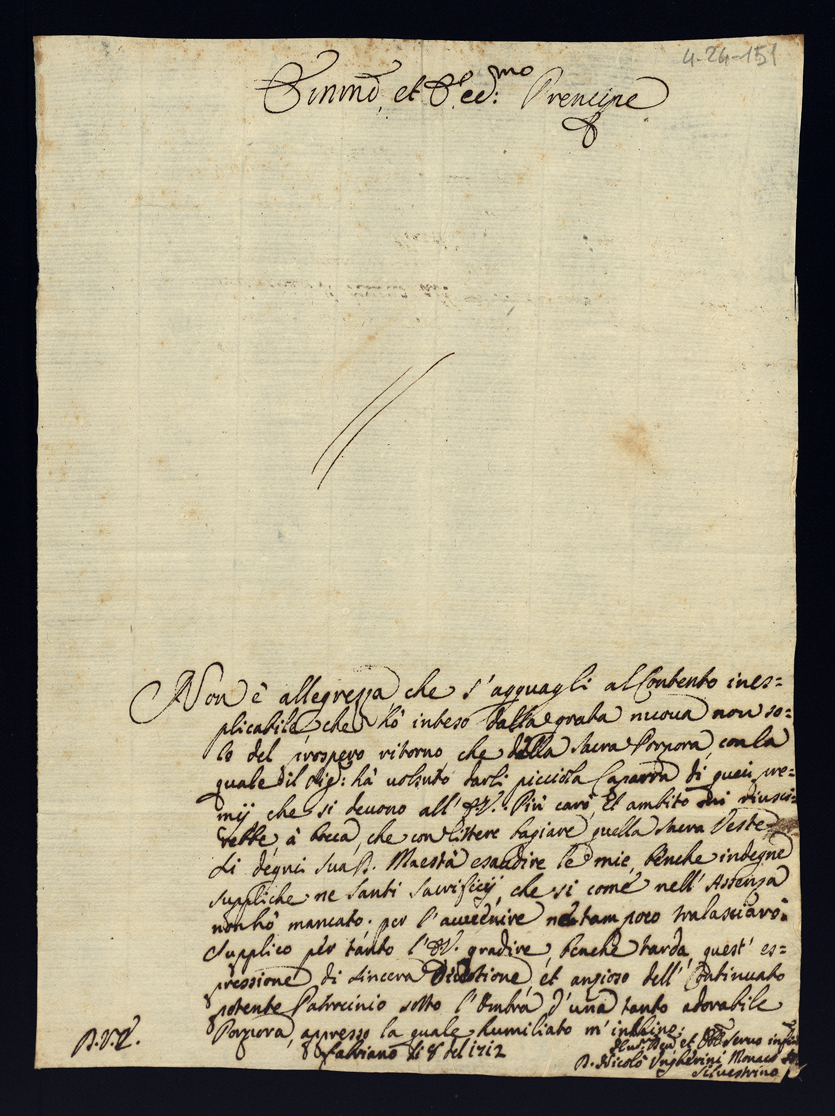 4-24-151
Emmo, et Recc:mo Prencipe
Non è allegrezza che s'agguagli al Contento ines=
plicabile, che hò inteso dalla grata nuova non so=
lo del prospero ritorno, che della Sacra Porpora, con la
quale il Sig: hà voluto darli picciola Caparra di quei pre=
mij che si devono all' EV. Più caro, et ambito mi riusci=
rebbe, à bocca, che con littere bagiare quella sacra Veste
Si degni Sua D. Maestà esaudire le mie, benche indegne
suppliche ne Santi Sacrificij, che si come nell' Assenza
non hò mancato, per l'avvenire ne tampoco tralasciarò:
Supplico per tanto l'EV. gradire, benche tarda, quest' es=
pressione di sincera Divotione, et ansioso dell' Continuato
potente Patrocinio sotto l'Ombra d'una tanto adorabile
Porpora, appresso la quale humiliato m'inchino.
Fabriano li 8 del 1712
Servo
D. Nicolò Ungherini Monaco
Silvestrino